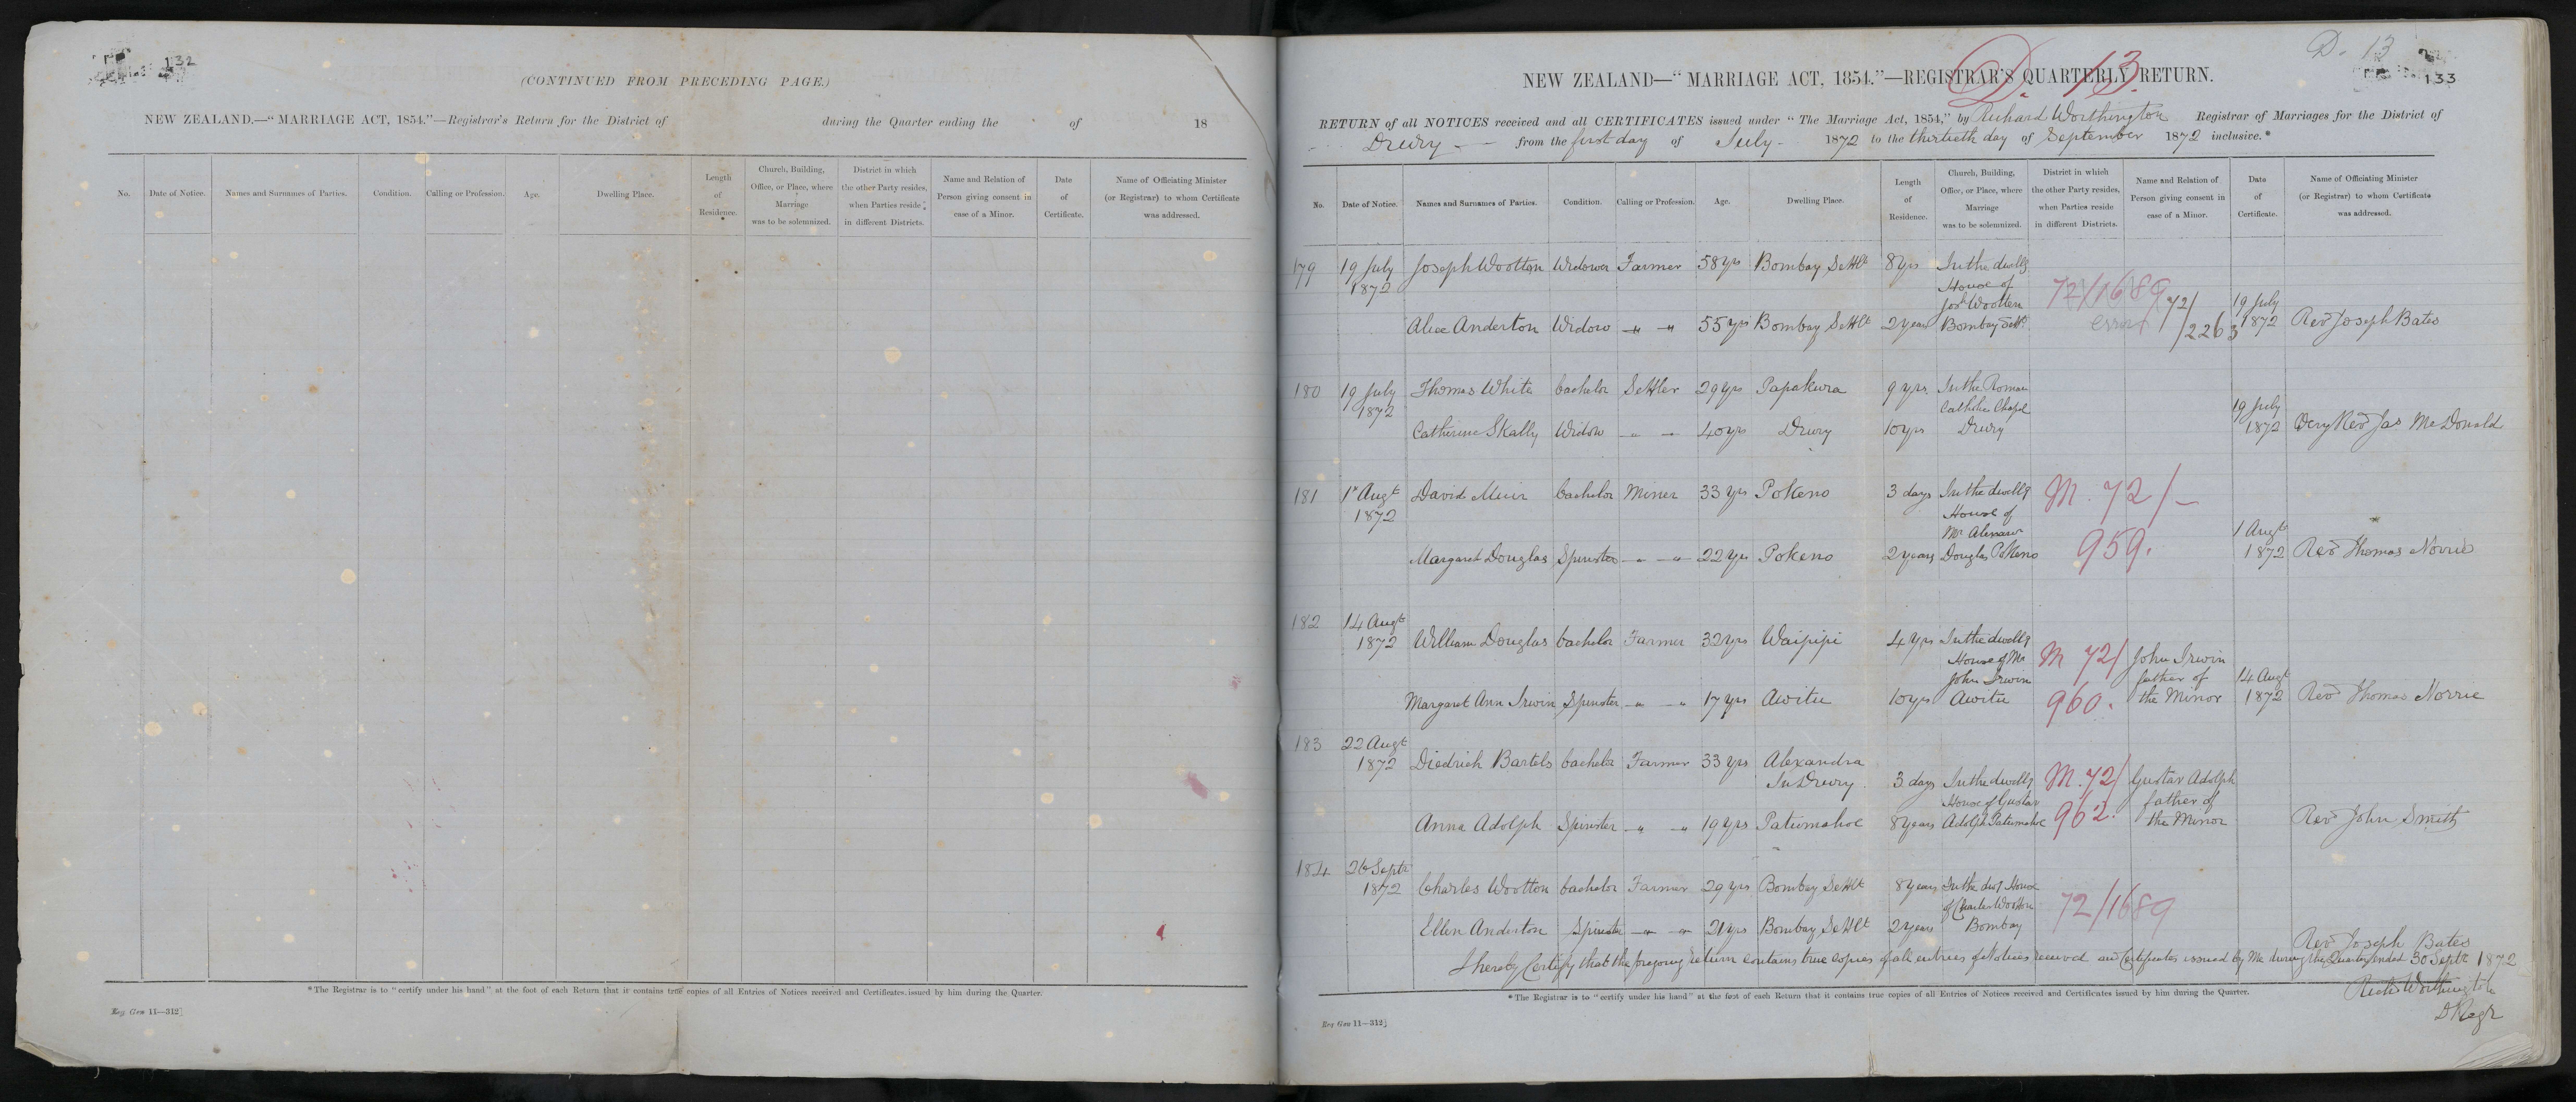 132
(CONTINUED FROM PRECEDING PAGE.)
NEW ZEALAND.—"MARRIAGE ACT, 1854."—Registrar's Return for the District of during the Quarter ending the of 18
No. Date of Notice. Names and Surnames of Parties. Condition. Calling or Profession. Age. Dwelling Place. Length of Residence. Church, Building, Office, or Place, where Marriage was to be solemnized. District in which the other Party resides, when Parties reside in different Districts. Name and Relation of Person giving consent in case of a Minor. Date of Certificate. Name of Officiating Minister (or Registrar) to whom Certificate was addressed.
*The Registrar is to "certify under his hand" at the foot of each Return that it contains true copies of all Entries of Notices received and Certificates issued by him during the Quarter.
Reg Gen 11—312]
D. 13
133
D. 13.
NEW ZEALAND—"MARRIAGE ACT, 1854."—REGISTRAR'S QUARTERLY RETURN.
RETURN of all NOTICES received and all CERTIFICATES issued under "The Marriage Act, 1854," by Richard Worthington Registrar of Marriages for the District of
Drury from the first day of July 1872 to the thirtieth day of September 1872 inclusive.*
No. Date of Notice. Names and Surnames of Parties. Condition. Calling or Profession. Age. Dwelling Place. Length of Residence. Church, Building, Office, or Place, where Marriage was to be solemnized. District in which the other Party resides, when Parties reside in different Districts. Name and Relation of Person giving consent in case of a Minor. Date of Certificate. Name of Officiating Minister (or Registrar) to whom Certificate was addressed.
179 19 July Joseph Wootton Widower Farmer 58 yrs Bombay Settlt 8 yrs In the dwellg
1872 House of 72/1689
Jos Wootten 72/ 19 July
Alice Anderton Widow 55 yrs Bombay Settlt 2 years Bombay Settt error 2263 1872 Revd Joseph Bates
180 19 July Thomas White bachelor Settler 29 yrs Papakura 9 yrs In the Roman
1872 Catholic Chapel 19 July
Catherine Skally Widow 40 yrs Drury 10 yrs Drury 1872 Very Revd Jas McDonald
181 1st Augt David Muir bachelor Miner 33 yrs Pokeno 3 days In the dwellg M. 72/-
1872 House of
Mr 1 Augt
Margaret Douglas Spinster 22 yrs Pokeno 2 years Douglas Pokeno 959. 1872 Revd Thomas Norrie
182 14 Augt
1872 William Douglas bachelor Farmer 32 yrs Waipipi 4 yrs In the dwellg
House of Mr M 72/ John Irwin
John Irwin father of 14 Augt
Margaret Ann Irwin Spinster 17 yrs Awitu 10 yrs Awitu 960. the Minor 1872 Revd Thomas Norrie
183 22 Augt
1872 Diedrich Bartels bachelor Farmer 33 yrs Alexandra
In Drury 3 days In the dwellg M. 72/ Gustav Adolph
House of Gustav father of
Anna Adolph Spinster 19 yrs Patumahoe 8 years Adolph Patumahoe 962. the Minor Revd John Smith
184 26 Septr
1872 Charles Wootton bachelor Farmer 29 yrs Bombay Settlt 8 years In the House
of Charles Wootton 72/1689
Ellen Anderton Spinster 21 yrs Bombay Settlt 2 years Bombay
Revd Joseph Bates
I hereby Certify that the foregoing return contains true copies of all entries of Notices received and Certificates issued by Me during the Quarter ended 30 Septr 1872
Richd Worthington
D Regr
*The Registrar is to "certify under his hand" at the foot of each Return that it contains true copies of all Entries of Notices received and Certificates issued by him during the Quarter.
Reg Gen 11—312]